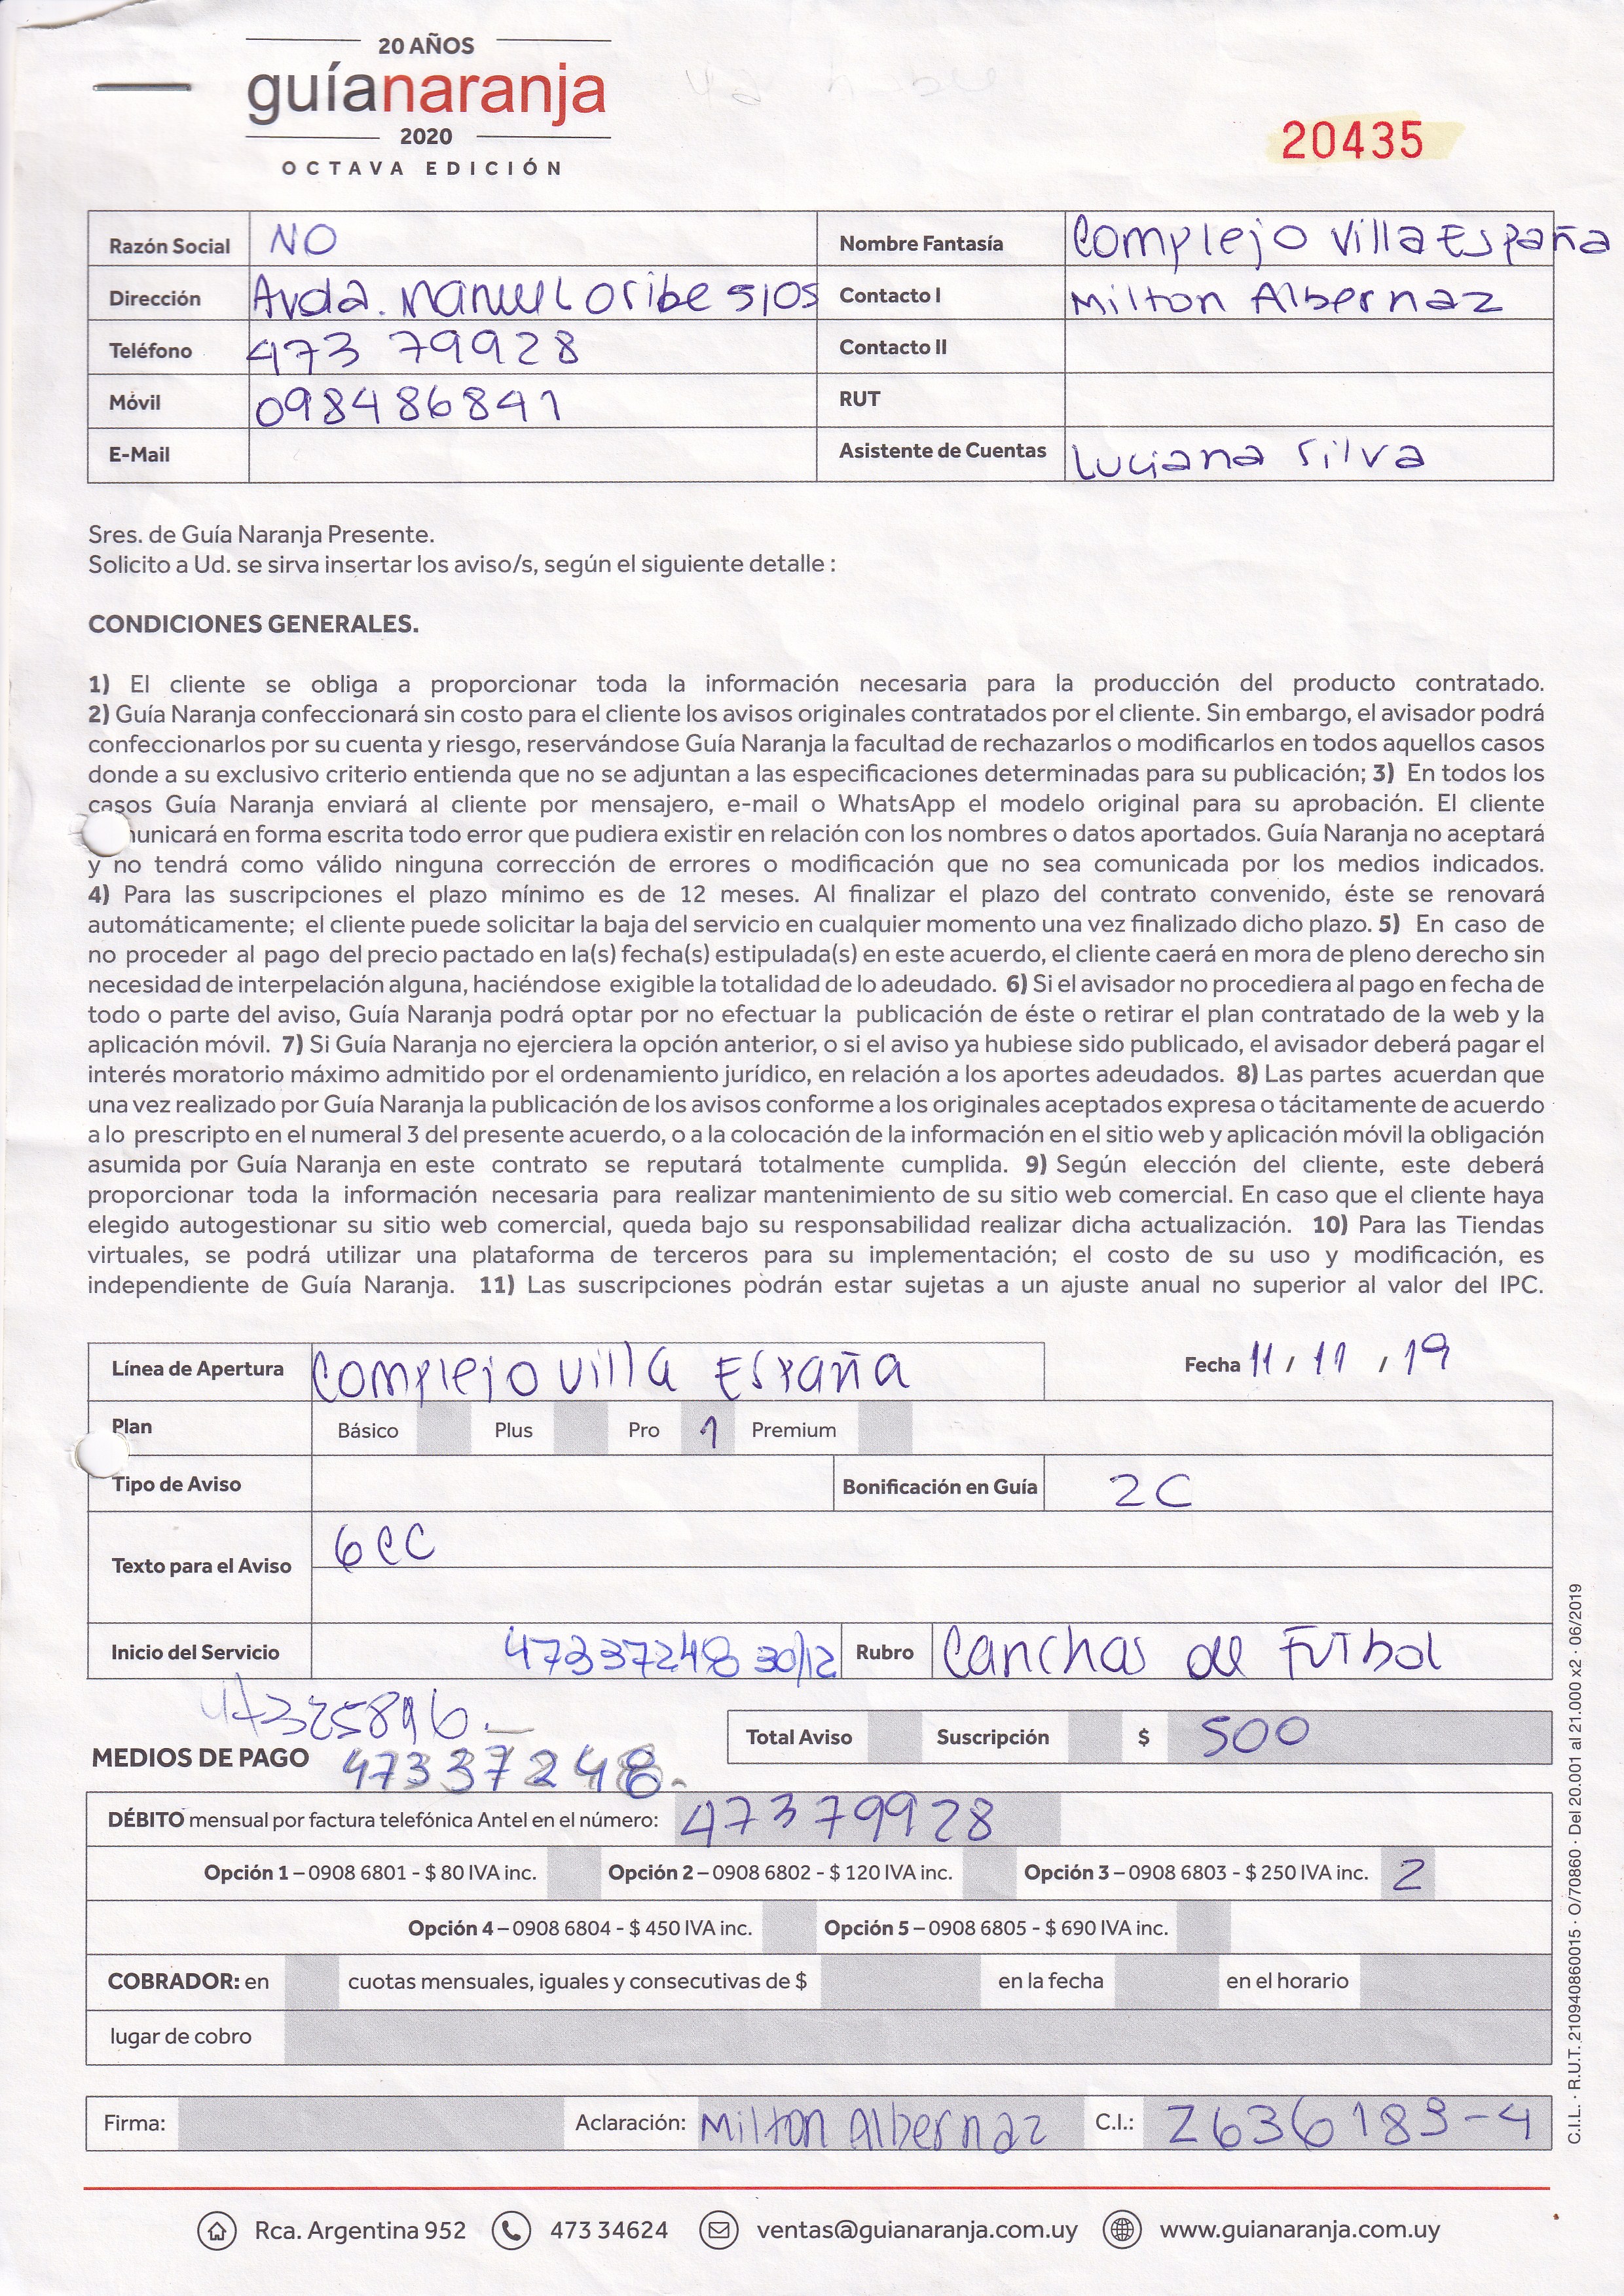 20 AÑOS
guíanaranja
2020
OCTAVA EDICIÓN
20435
Razón Social NO Nombre Fantasía Complejo Villa España
Dirección Avda. Manuel Oribe S/OS Contacto I Milton Albernaz
Teléfono 473 79928 Contacto II
Móvil 098486841 RUT
E-Mail Asistente de Cuentas Luciana Silva
Sres. de Guía Naranja Presente.
Solicito a Ud. se sirva insertar los aviso/s, según el siguiente detalle :
CONDICIONES GENERALES.
1) El cliente se obliga a proporcionar toda la información necesaria para la producción del producto contratado.
2) Guía Naranja confeccionará sin costo para el cliente los avisos originales contratados por el cliente. Sin embargo, el avisador podrá
confeccionarlos por su cuenta y riesgo, reservándose Guía Naranja la facultad de rechazarlos o modificarlos en todos aquellos casos
donde a su exclusivo criterio entienda que no se adjuntan a las especificaciones determinadas para su publicación; 3) En todos los
casos Guía Naranja enviará al cliente por mensajero, e-mail o WhatsApp el modelo original para su aprobación. El cliente
unicará en forma escrita todo error que pudiera existir en relación con los nombres o datos aportados. Guía Naranja no aceptará
y no tendrá como válido ninguna corrección de errores o modificación que no sea comunicada por los medios indicados.
4) Para las suscripciones el plazo mínimo es de 12 meses. Al finalizar el plazo del contrato convenido, éste se renovará
automáticamente; el cliente puede solicitar la baja del servicio en cualquier momento una vez finalizado dicho plazo. 5) En caso de
no proceder al pago del precio pactado en la(s) fecha(s) estipulada(s) en este acuerdo, el cliente caerá en mora de pleno derecho sin
necesidad de interpelación alguna, haciéndose exigible la totalidad de lo adeudado. 6) Si el avisador no procediera al pago en fecha de
todo o parte del aviso, Guía Naranja podrá optar por no efectuar la publicación de éste o retirar el plan contratado de la web y la
aplicación móvil. 7) Si Guía Naranja no ejerciera la opción anterior, o si el aviso ya hubiese sido publicado, el avisador deberá pagar el
interés moratorio máximo admitido por el ordenamiento jurídico, en relación a los aportes adeudados. 8) Las partes acuerdan que
una vez realizado por Guía Naranja la publicación de los avisos conforme a los originales aceptados expresa o tácitamente de acuerdo
a lo prescripto en el numeral 3 del presente acuerdo, o a la colocación de la información en el sitio web y aplicación móvil la obligación
asumida por Guía Naranja en este contrato se reputará totalmente cumplida. 9) Según elección del cliente, este deberá
proporcionar toda la información necesaria para realizar mantenimiento de su sitio web comercial. En caso que el cliente haya
elegido autogestionar su sitio web comercial, queda bajo su responsabilidad realizar dicha actualización. 10) Para las Tiendas
virtuales, se podrá utilizar una plataforma de terceros para su implementación; el costo de su uso y modificación, es
independiente de Guía Naranja. 11) Las suscripciones podrán estar sujetas a un ajuste anual no superior al valor del IPC.
Línea de Apertura Complejo Villa España Fecha 11 / 11 / 19
Plan Básico Plus Pro 1 Premium
Tipo de Aviso Bonificación en Guía 2C
Texto para el Aviso 6CC
Inicio del Servicio 47337248 30/12 Rubro Canchas de Futbol
47325896.
Total Aviso Suscripción $ 500
MEDIOS DE PAGO 47337248.
DÉBITO mensual por factura telefónica Antel en el número: 47379928
Opción 1 – 0908 6801 - $ 80 IVA inc. Opción 2 – 0908 6802 - $ 120 IVA inc. Opción 3 – 0908 6803 - $ 250 IVA inc. 2
Opción 4 – 0908 6804 - $ 450 IVA inc. Opción 5 – 0908 6805 - $ 690 IVA inc.
COBRADOR: en cuotas mensuales, iguales y consecutivas de $ en la fecha en el horario
lugar de cobro
Firma: Aclaración: Milton Albernaz C.I.: 2636183-4
C.I.L. · R.U.T. 210940860015 · O/70860 · Del 20.001 al 21.000 x2 · 06/2019
Rca. Argentina 952 473 34624 ventas@guianaranja.com.uy www.guianaranja.com.uy